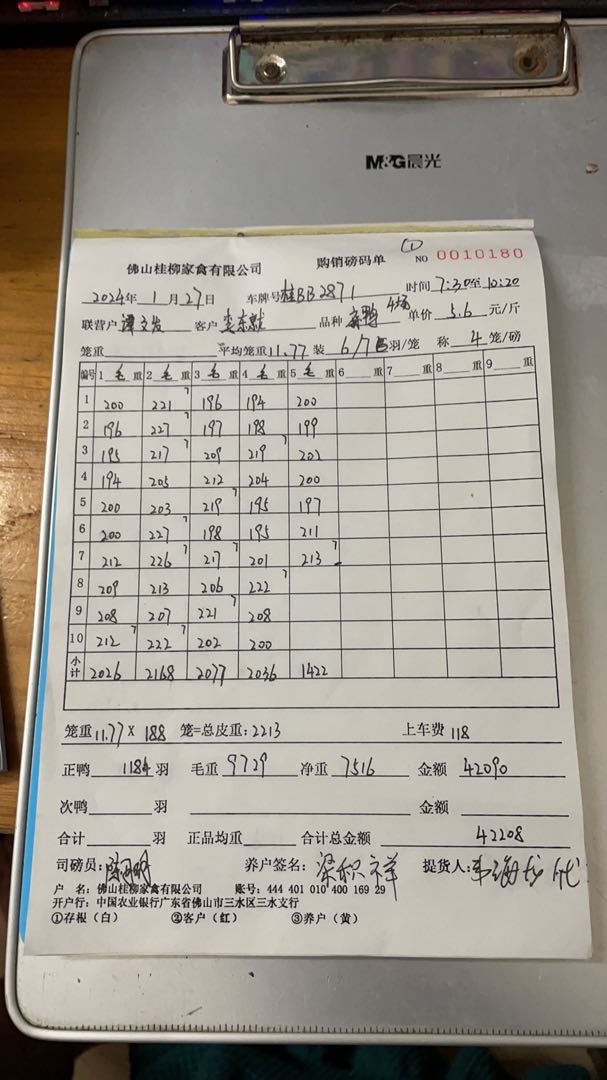 M&G晨光
佛山桂柳家禽有限公司 购销磅码单 ① NO 0010180
2024年 1月27日 车牌号 桂BB2871 时间 7:30至10:20
联营户 谭文发 客户 李东就 品种 单价 5.6 元/斤
笼重 平均笼重 11.77 装 6/7 羽/笼 称 4 笼/磅
编号 1 毛 重 2 毛 重 3 毛 重 4 毛 重 5 毛 重 6 重 7 重 8 重 9 重
1 200 221 7 196 194 200
2 196 227 7 197 198 199
3 195 217 7 209 219 7 202
4 194 205 212 204 200
5 200 203 219 7 195 197
6 200 227 7 198 195 211
7 212 226 7 217 7 201 213 7
8 209 213 206 222 7
9 208 207 221 7 208
10 212 7 222 7 202 200
小计 2026 2168 2077 2036 1422
笼重 11.77 × 188 笼=总皮重: 2213 上车费 118
正鸭 1184 羽 毛重 9729 净重 7516 金额 42090
次鸭 羽 金额
合计 羽 正品均重 合计总金额 42208
司磅员: 养户签名: 梁积祥 提货人:
户 名: 佛山桂柳家禽有限公司 账号: 444 401 010 400 169 29
开户行: 中国农业银行广东省佛山市三水区三水支行
①存根（白） ②客户（红） ③养户（黄）